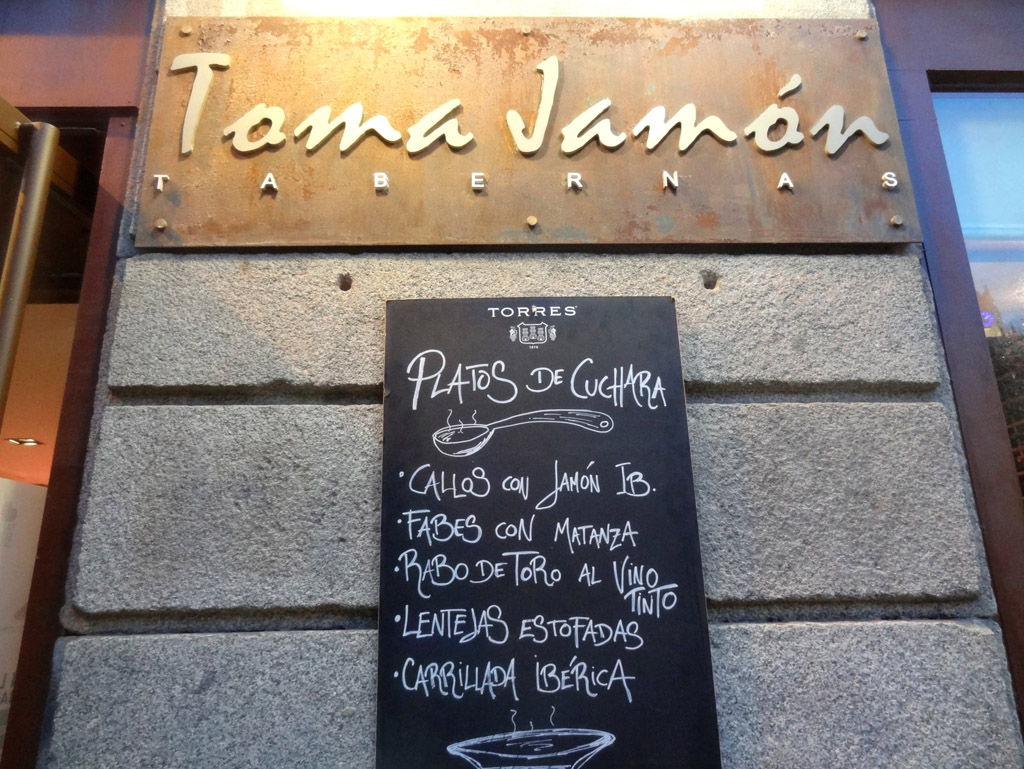 Toma Jamón
TABERNAS
TORRES
1870
PLATOS DE CUCHARA
·CALLOS CON JAMÓN IB.
·FABES CON MATANZA
·RABO DE TORO AL VINO
TINTO
·LENTEJAS ESTOFADAS
·CARRILLADA IBÉRICA